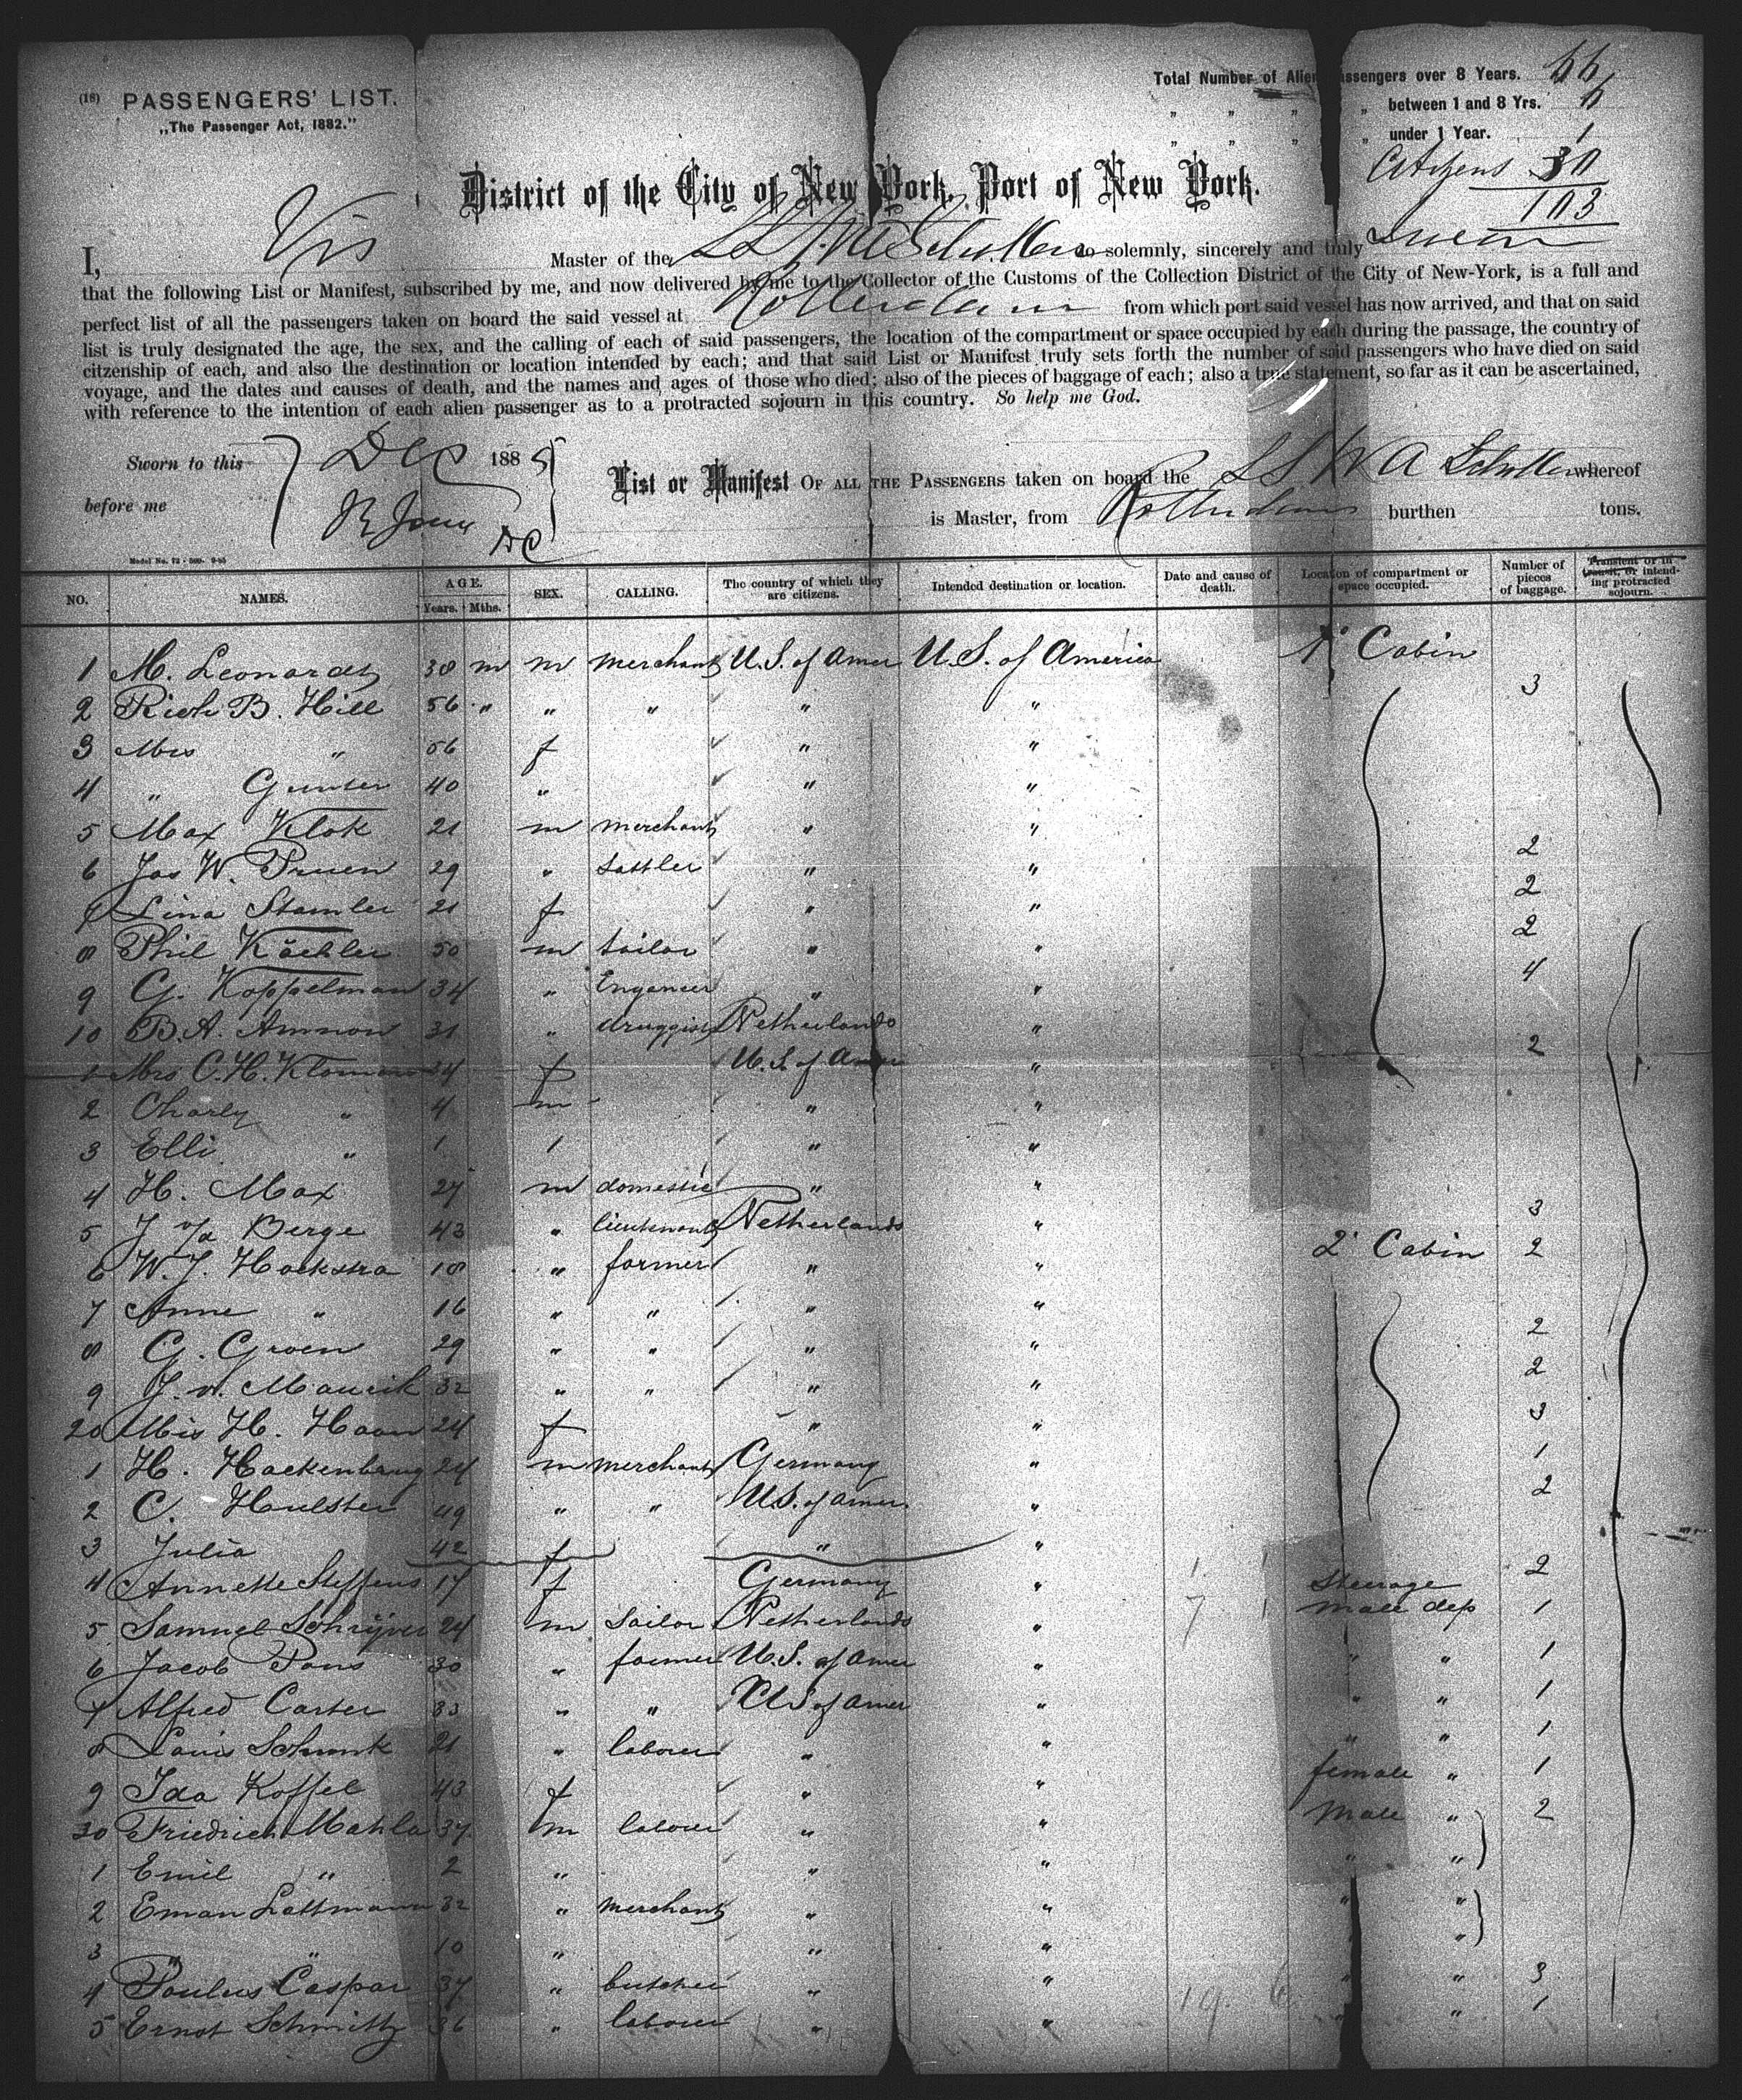 (18) PASSENGERS' LIST.
„The Passenger Act, 1882."
Total Number of Alien Passengers over 8 Years. 66
„ „ „ „ between 1 and 8 Yrs. 6
„ „ „ „ under 1 Year. 1
Citizens 30
103
District of the City of New York, Port of New York.
I, Vis Master of the SS W A Scholten do solemnly, sincerely and truly swear
that the following List or Manifest, subscribed by me, and now delivered by me to the Collector of the Customs of the Collection District of the City of New-York, is a full and
perfect list of all the passengers taken on board the said vessel at Rotterdam from which port said vessel has now arrived, and that on said
list is truly designated the age, the sex, and the calling of each of said passengers, the location of the compartment or space occupied by each during the passage, the country of
citzenship of each, and also the destination or location intended by each; and that said List or Manifest truly sets forth the number of said passengers who have died on said
voyage, and the dates and causes of death, and the names and ages of those who died; also of the pieces of baggage of each; also a true statement, so far as it can be ascertained,
with reference to the intention of each alien passenger as to a protracted sojourn in this country. So help me God.
Sworn to this Dec 1885
before me
List or Manifest OF ALL THE PASSENGERS taken on board the SS W A Scholten whereof
is Master, from Rotterdam burthen tons.
Model No. 72
NO. NAMES. AGE. Years. Mths. SEX. CALLING. The country of which they are citizens. Intended destination or location. Date and cause of death. Location of compartment or space occupied. Number of pieces of baggage. Transient or in transit, or intending protracted sojourn.
1 M. Leonardt 38 m m merchant U.S. of Amer U.S. of America 1° Cabin
2 Rich B. Hill 56 „ „ „ „ „ 3
3 Mrs „ 56 f „ „
4 „ Gunter 40 „ „ „
5 Max Klok 21 m merchant „ „
6 Jas W. Pruen 29 „ sattler „ „ 2
7 Lina Stamler 21 f „ „ 2
8 Phil Käehler 50 m tailor „ „ 2
9 G. Koppelman 34 „ Engeneer „ „ 4
10 B. A. Ammon 31 „ druggist Netherlands „
1 Mrs C. H. Klomann 34 f U.S. of Amer „ 2
2 Charly „ 4 m „ „
3 Elli „ 1 / „ „
4 H. Max 27 m domestic „ „
5 J v/d Berge 43 „ lieutenant Netherlands „ 3
6 W. J. Hoekstra 18 „ farmer „ „ 2° Cabin 2
7 Anne „ 16 „ „ „ „
8 G. Groen 29 „ „ „ „ 2
9 J. v. Maurik 32 „ „ „ „ 2
20 Mis H. Haan 24 f „ „ 3
1 H. Hackenbrug 24 m merchant Germany „ 1
2 C. Hoelster 49 „ „ U.S. of Amer „ 2
3 Julia 42 f „ „
4 Annette Steffens 17 f Germany „ Steerage 2
5 Samuel Schrijver 24 m Sailor Netherlands „ male dep 1
6 Jacob Pons 30 „ farmer U.S. of Amer „ „ „ 1
7 Alfred Carter 33 „ „ US of Amer „ „ „ 1
8 Louis Schunk 21 „ laborer „ „ „ „ 1
9 Ida Koffel 43 f „ „ female „ 1
30 Friedrich Mahla 37 m laborer „ „ Male „ 2
1 Emil „ 2 „ „ „ „ „
2 Eman Lattmann 32 „ merchant „ „ „ „
3 „ „ 10 „ „ „ „
4 Paulus Caspar 37 „ butcher „ „ „ „ 3
5 Ernst Schmitt 36 „ laborer „ „ „ „ 1